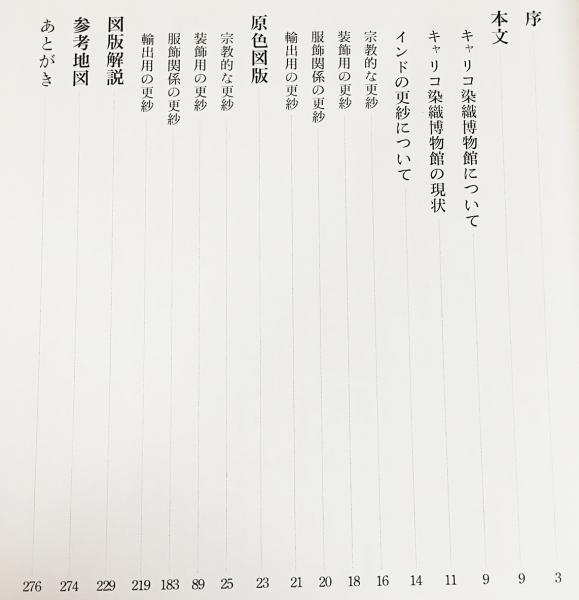 序 3
本文 9
キャリコ染織博物館について 9
キャリコ染織博物館の現状 11
インドの更紗について 14
宗教的な更紗 16
装飾用の更紗 18
服飾関係の更紗 20
輸出用の更紗 21
原色図版 23
宗教的な更紗 25
装飾用の更紗 89
服飾関係の更紗 183
輸出用の更紗 219
図版解説 229
参考地図 274
あとがき 276